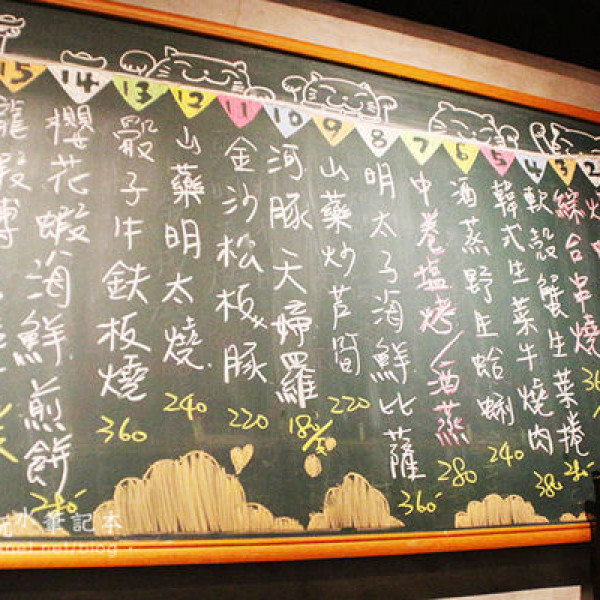 2
3
綜合串燒
軟殼蟹生菜捲
4
韓式生菜牛燒肉
380
5
酒蒸野生蛤蜊
240
6
中卷塩烤/酒蒸
280
7
明太子海鮮比薩
360
8
山藥炒芦筍
220
9
河豚天婦羅
180/
10
金沙松板豚
220
11
山藥明太燒
240
12
骰子牛鉄板燒
360
13
櫻花蝦海鮮煎餅
14
龍蝦
15
水筆記本
.net/blog